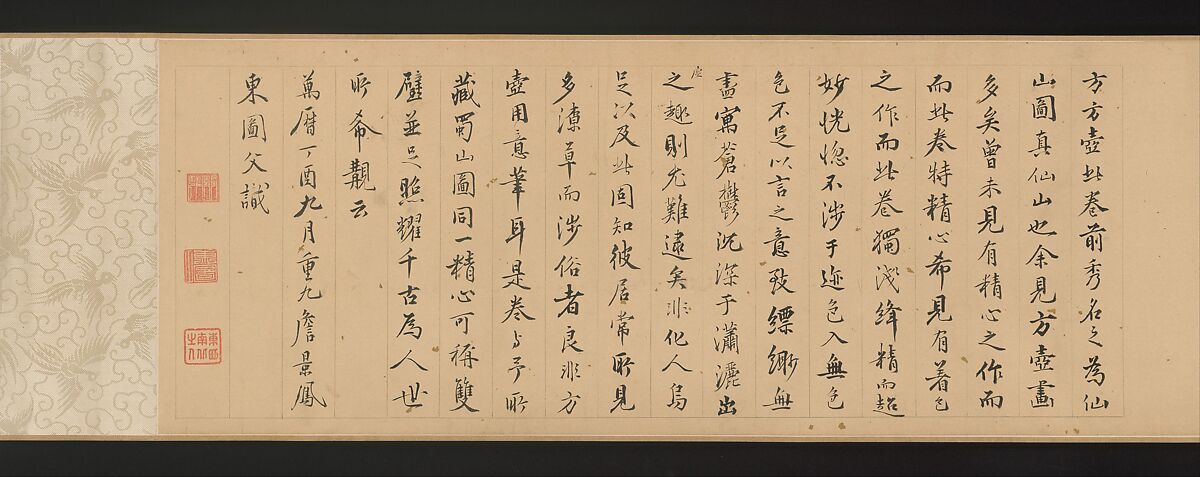 方方壺此卷前秀名之為仙
山圖真仙山也余見方壺畫
多矣曾未見有精心之作而
而此卷特精心希見有着色
之作而此卷獨淺絳精而超
妙恍惚不涉于迹色入無色
色不足以言之意致縹緲無
盡寓蒼鬱沈深于瀟灑出
塵之趣則尤難逮矣非化人烏
足以及此固知彼居常所見
多潦草而涉俗者良非方
壺用意筆耳是卷与予所
藏蜀山圖同一精心可稱雙
璧並足照耀千古為人世
所希覯云
萬曆丁酉九月重九詹景鳳
東圖父識